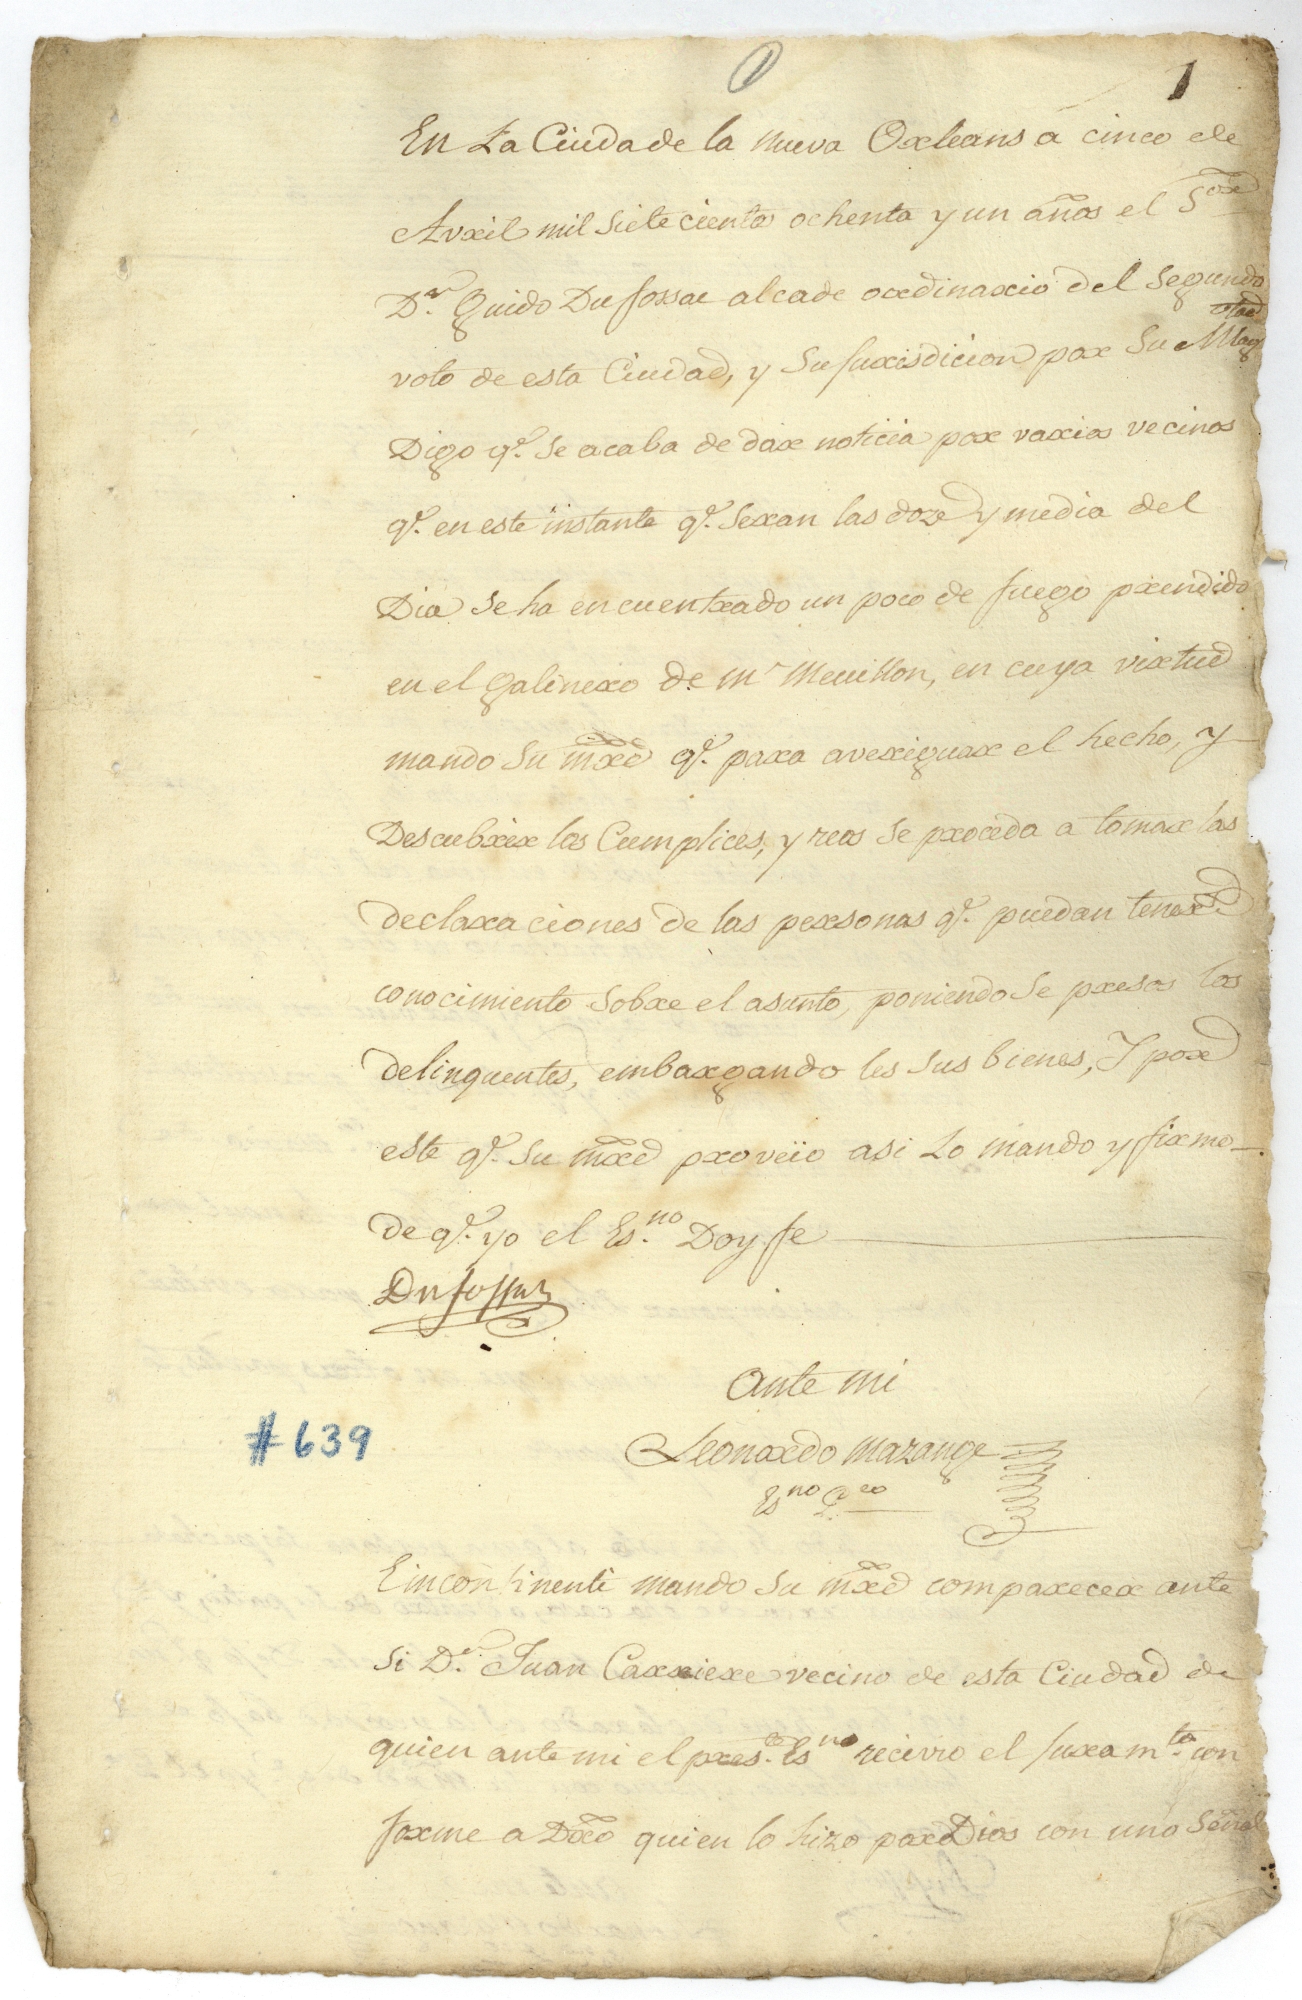 1
1
En La Ciudad de la Nueva Orleans a cinco de
Avril mil siete cientos ochenta y un años el Sor
Dn. Guido Dufossat alcade ordinario del Segundo
voto de esta Ciudad, y Su Jurisdicion por Su Magtad
Digo qe. Se acaba de dar noticia por varios vecinos
qe. en este instante qe. Seran las doze y media del
Dia Se ha encuentrado un poco de fuego prendido
en el galinero de Mr Meuillon, en cuya virtud
mando Su mrd qe. para averiguar el hecho, y
Descubrir los Cumplices, y reos Se proceda a tomar las
declaraciones de las personas qe. puedan tener
conocimiento Sobre el asunto, poniendo Se presos los
delinquentes, embargando les Sus bienes, Y por
este qe. Su mrd proveiio asi Lo mando y firmo
de qe. yo el Es.no Doy fe
Dufossat
Ante mi
Leonardo Mazange
Esno Pco
#639
Eincontinenti mando Su mrd comparecer ante
Si Dn. Juan Carriere vecino de esta Ciudad de
quien ante mi el preste. Esno recivio el Juramto. con
forme a Dro quien lo hizo por Dios con una Señal